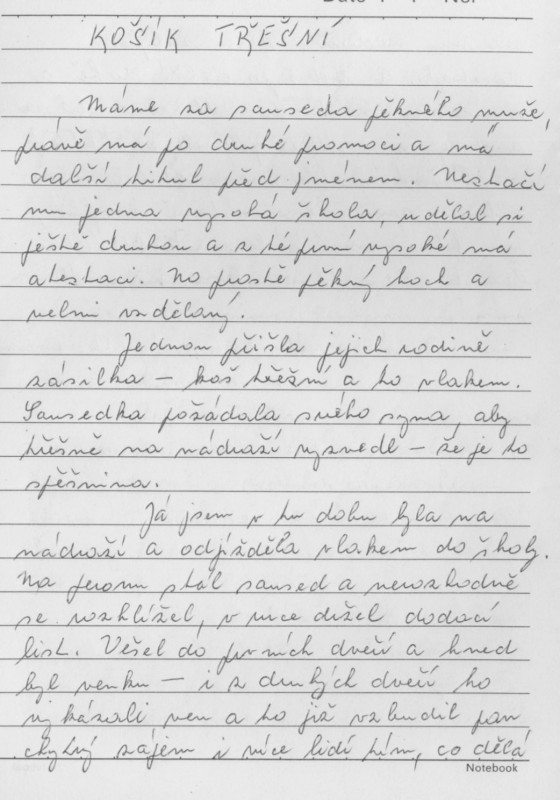 KOŠÍK TŘEŠNÍ
Máme za souseda pěkného muže,
právě má po druhé promoci a má
další titul před jménem. Nestačí
mu jedna vysoká škola, udělal si
ještě druhou a z té první vysoké má
atestaci. No prostě pěkný hoch a
velmi vzdělaný.
Jednou přišla jejich rodině
zásilka – koš třešní a to vlakem.
Sousedka požádala svého syna, aby
třešně na nádraží vyzvedl – že je to
spěšnina.
Já jsem v tu dobu byla na
nádraží a odjížděla vlakem do školy.
Na peronu stál soused a nerozhodně
se rozhlížel, v ruce držel dodací
list. Vešel do prvních dveří a hned
byl venku – i z druhých dveří ho
vykázali ven a to již vzbudil
zájem i více lidí tím, co dělá
Notebook